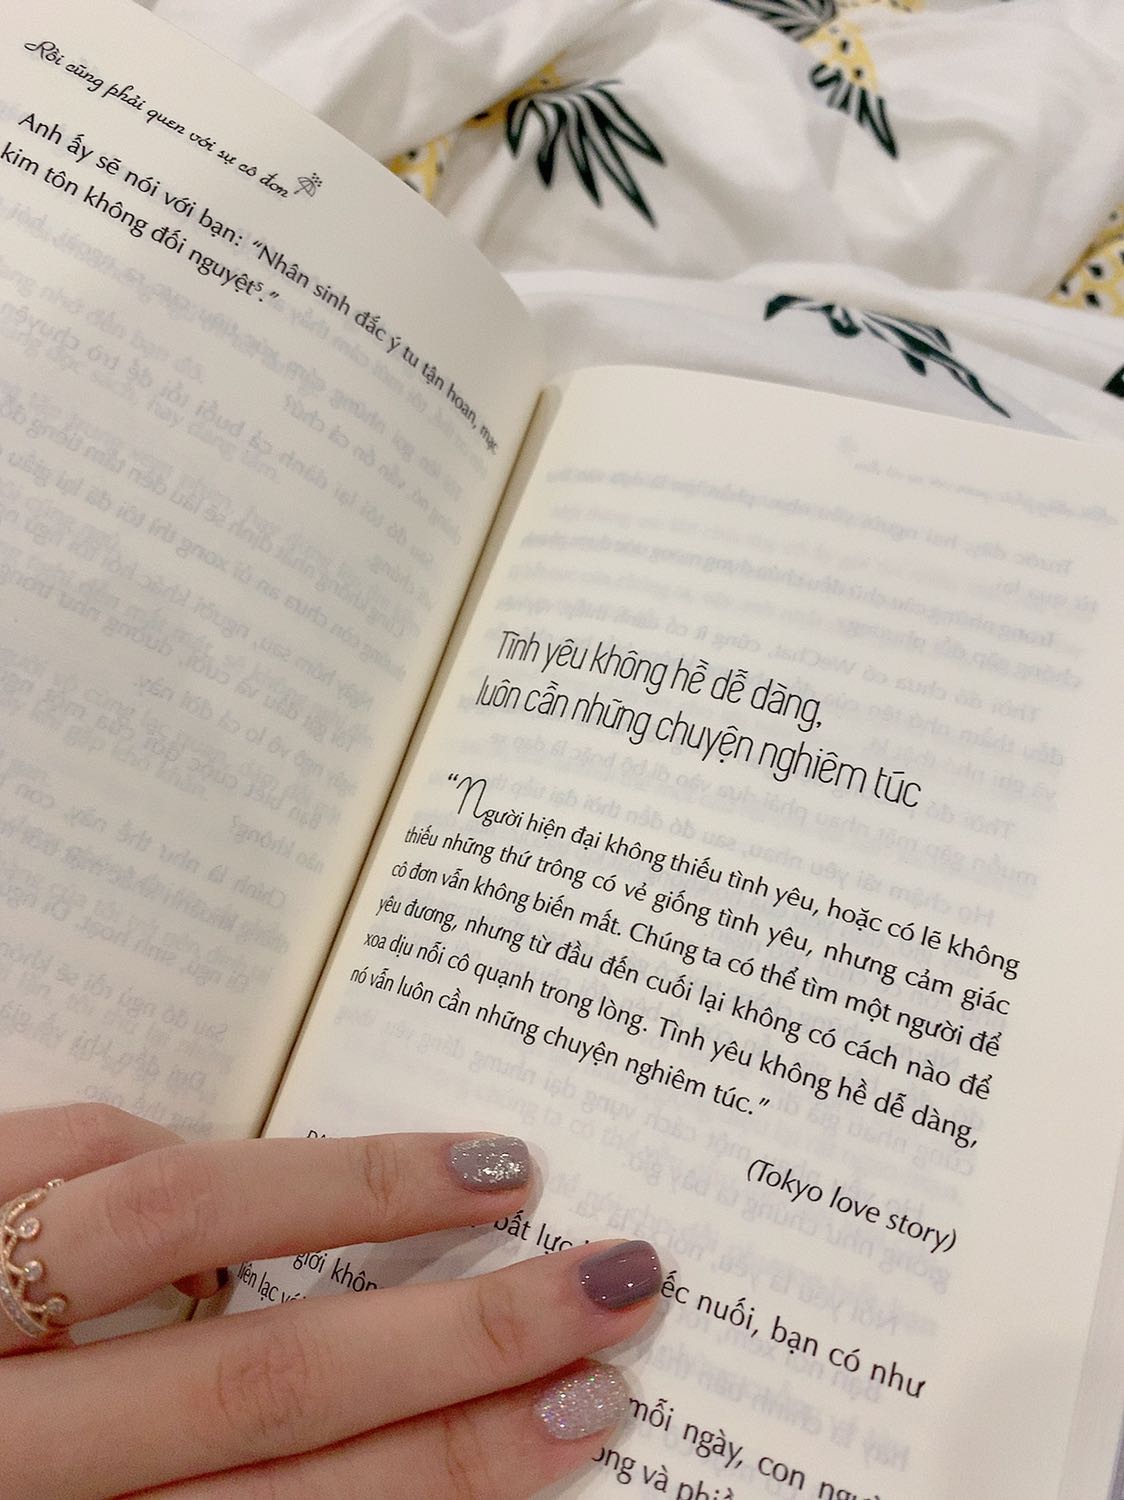 Rồi cũng phải quen với sự cô đơn
Anh ấy sẽ nói với bạn: “Nhân sinh đắc ý tu tận hoan, mạc
kim tôn không đối nguyệt⁵.”
Tình yêu không hề dễ dàng,
luôn cần những chuyện nghiêm túc
“Người hiện đại không thiếu tình yêu, hoặc có lẽ không
thiếu những thứ trông có vẻ giống tình yêu, nhưng cảm giác
cô đơn vẫn không biến mất. Chúng ta có thể tìm một người để
yêu đương, nhưng từ đầu đến cuối lại không có cách nào để
xoa dịu nỗi cô quạnh trong lòng. Tình yêu không hề dễ dàng,
nó vẫn luôn cần những chuyện nghiêm túc.”
(Tokyo love story)
bất lực nuối, bạn có như
giới
liên lạc
mỗi ngày, con
và